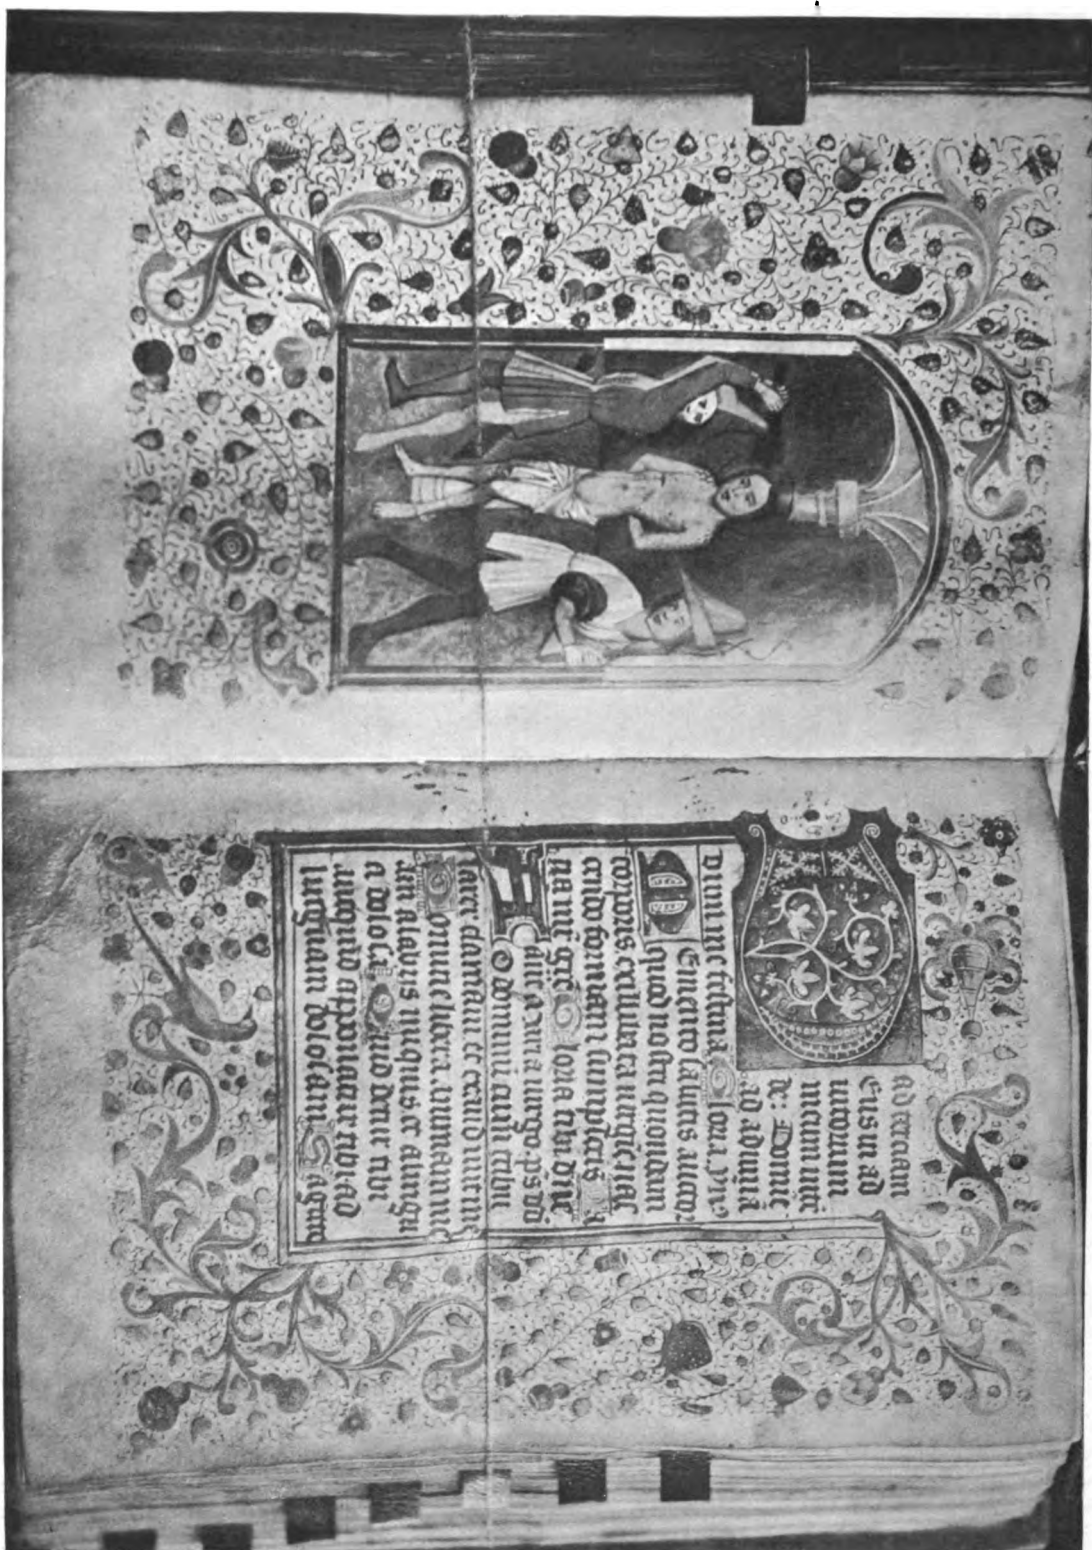 Ad terciam
Deus in ad
iutorium
meum inte
de: Domie
ad adiuuā
dum me festina Gloria
Memento salutis auctor
quod nostri quondam
corporis ex illibata uirgine nas
cendo formam sumpseris
Gloria tibi dne
uirgo ps dd
Ad dominū cum tribu
larer clamaui et exaudiuit me
Domine libera animam me
am a labiis iniquis et a lingu
a dolosa Quid detur tibi
aut quid apponatur tibi ad
linguam dolosam Sagitte